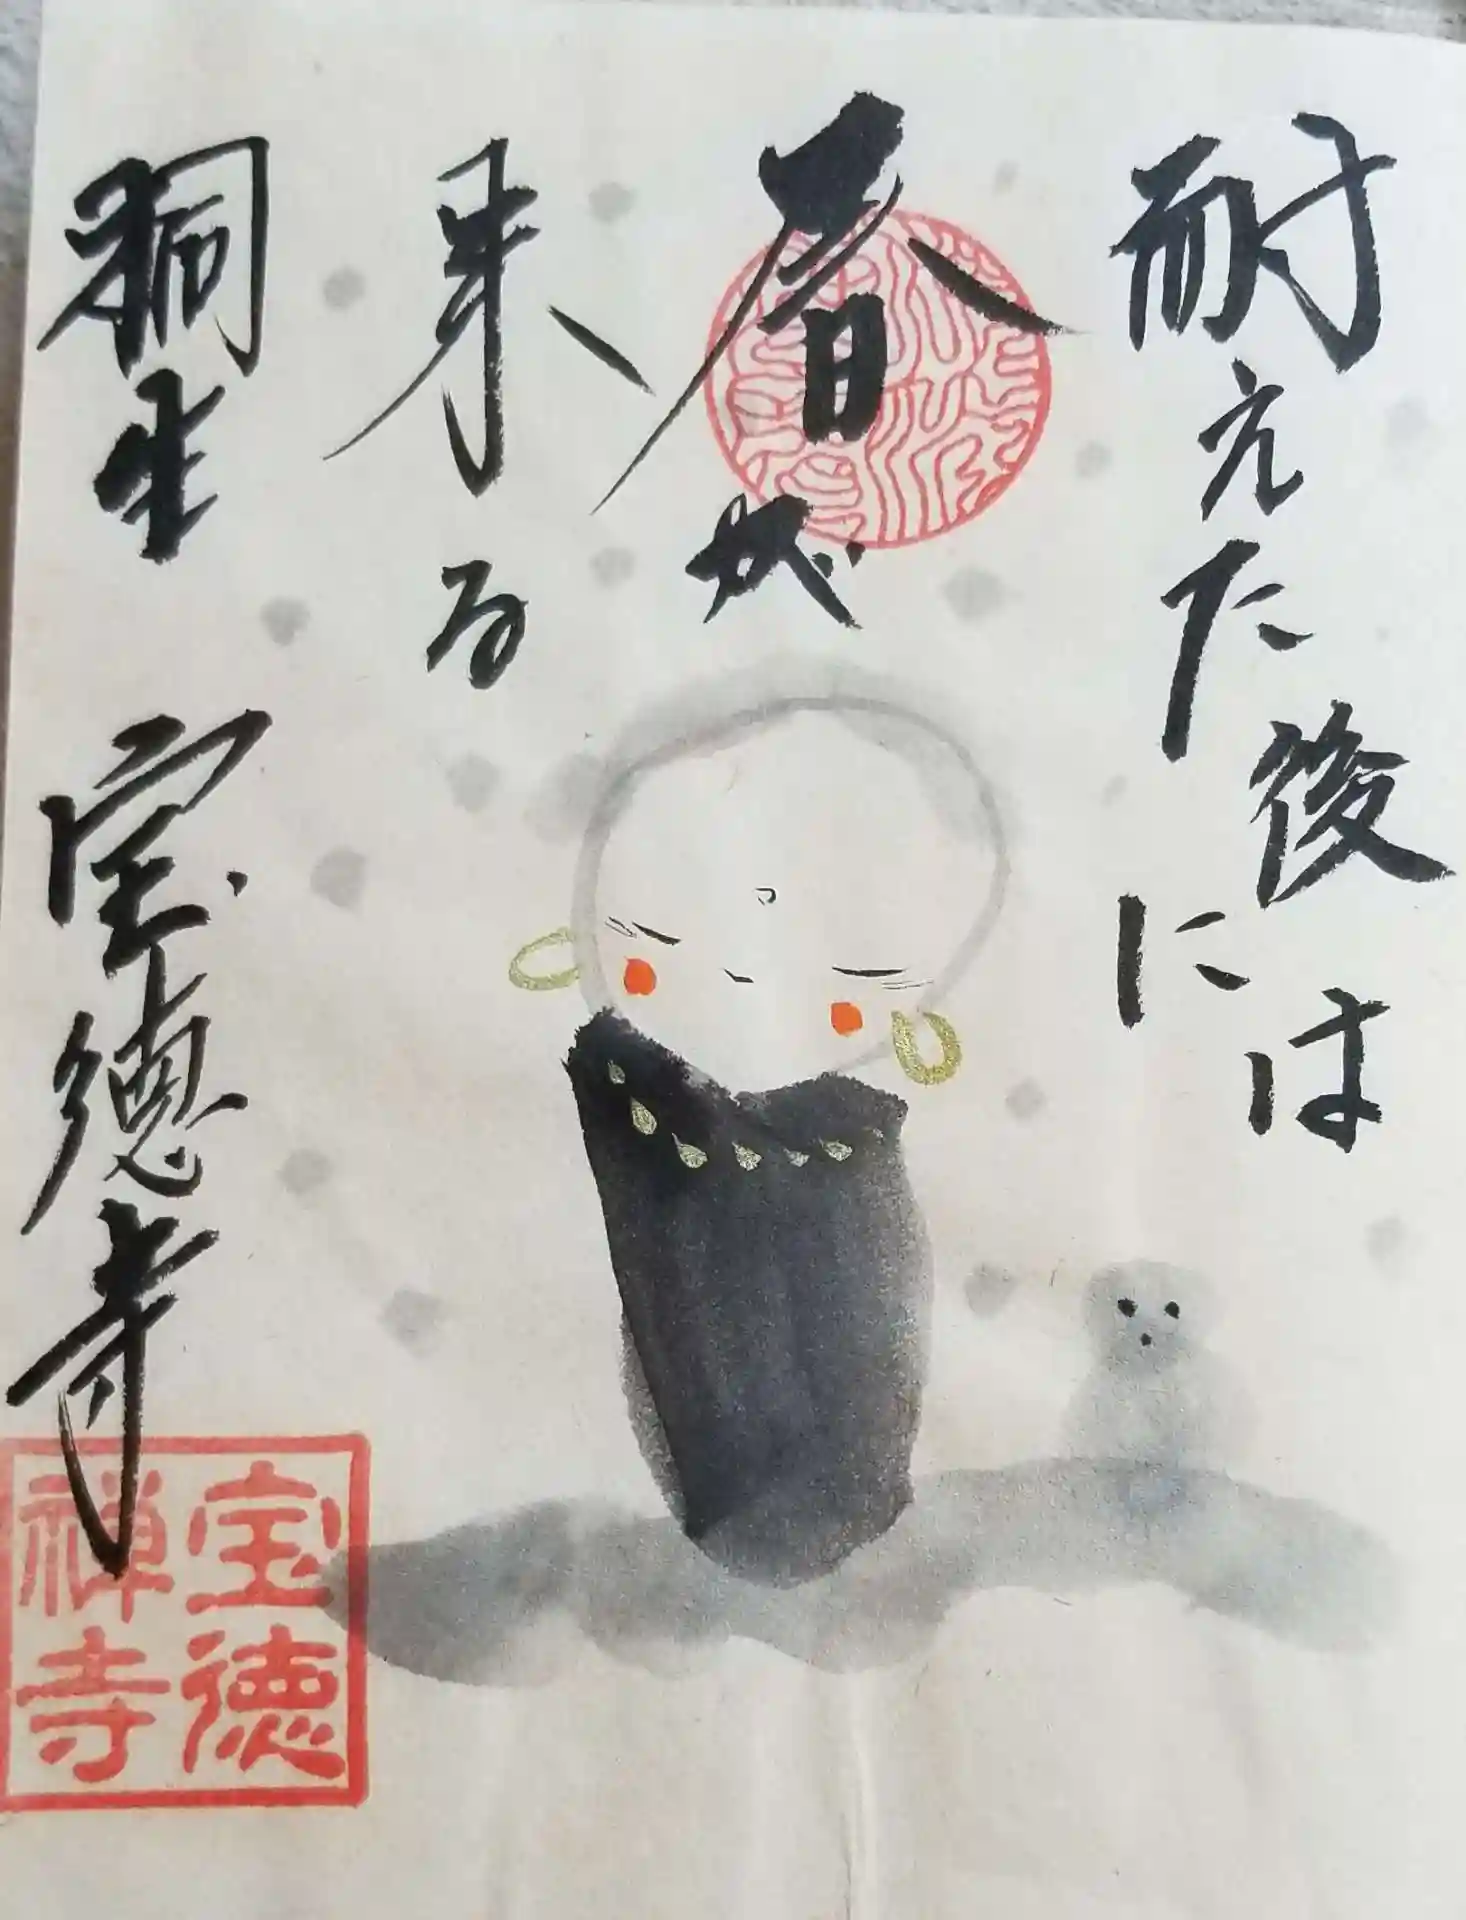 耐えた
後には
に
春が
来る
桐生 宝徳寺
宝徳
禅寺